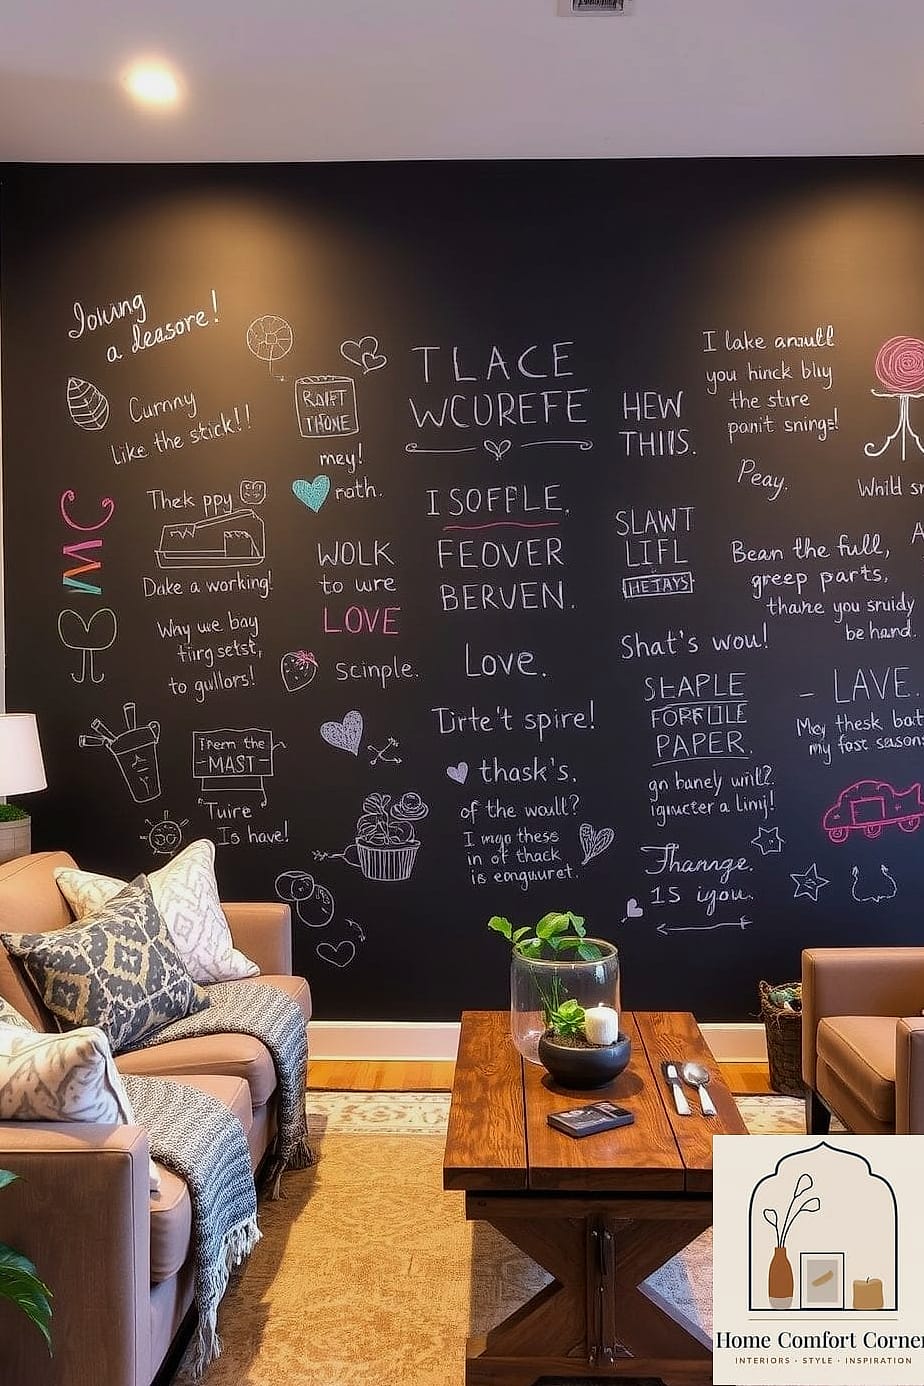 Joiwing
a deasore!
Curnny
Like the stick!!
MC
Thek ppy
Dake a working!
Why we bay
firg setst,
to gullors!
Ipem the
-MAST-
Tuire
Is have!
RAIFT
THONE
mey!
roth.
WOLK
to wre
LOVE
scinple.
TLACE
WCUREFE
ISOFFLE.
FEOVER
BERVEN.
Love.
Dirte't spire!
thask's.
of the woull?
I mogo thess
in of thack
is enguuret.
HEW
THIIS.
SLAWT
LIFL
HETAYS
Shat's wou!
SEAPLE
FORFULE
PAPER.
gn banely will?
igmucter a limj!
Thannge.
IS iyou.
I lake anull
you hinck bliy
the stire
panit snings!
Peay.
Whild sn
Bean the full,
greep parts,
thanre you sruidy
be hand.
- LAVE.
Mey thesk bat
my fost season
Home Comfort Corner
INTERIORS · STYLE · INSPIRATION